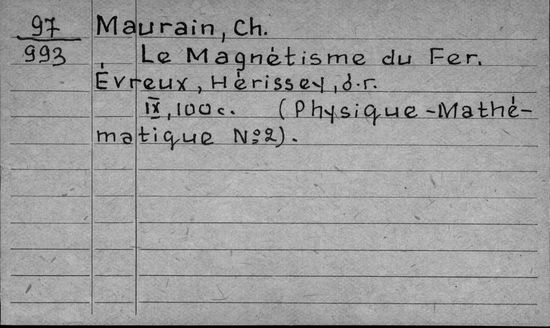 97 Maurain, Ch.
993 Le Magnétisme du Fer.
Évreux, Hérissey, d.r.
IX, 100c. (Physique-Mathé-
matique № 2).